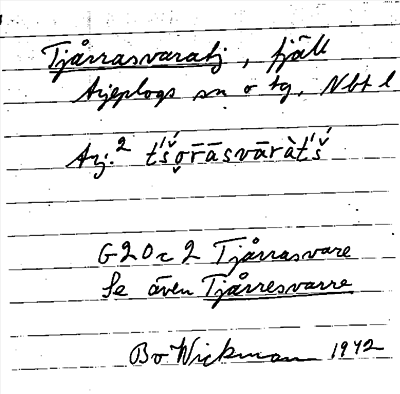 Tjårrasvaratj, fjäll
Arjeplogs sn o tg, Nbt l
Arj.² t́š́o̬rāsvāràt́š́
G20c2 Tjårrasvare
Se även Tjårresvarre
Bo Wickman 1942